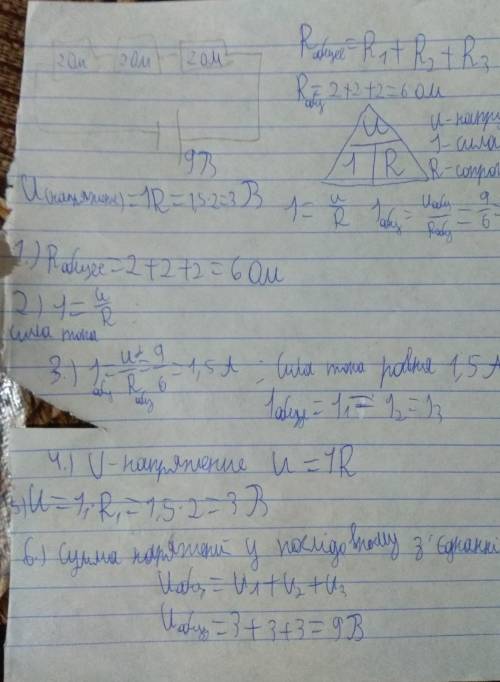 2 Ом 2 Ом 2 ОМ
9В
Rобщее = R1 + R2 + R3
Rобщ = 2+2+2 = 6 Ом
U
I R
U - напря
I - сила
R - сопро
U(напряжение) = IR = 1,5·2 = 3 В
I = U/R Iобщ = Uобщ/Rобщ = 9/6
1.) Rобщее = 2 + 2 + 2 = 6 Ом
2) I = U/R
сила тока
3.) Iобщ = U/Rобщ = 9/6 = 1,5 А ; Сила тока ровня 1,5 А
Iобщ = I1 = I2 = I3
4.) U - напряжение U = IR
5) U = I1·R1 = 1,5·2 = 3 В
6.) Сумма напряжей у послідовному з'єднанні
Uобщ = U1 + U2 + U3
Uобщ = 3 + 3 + 3 = 9 В